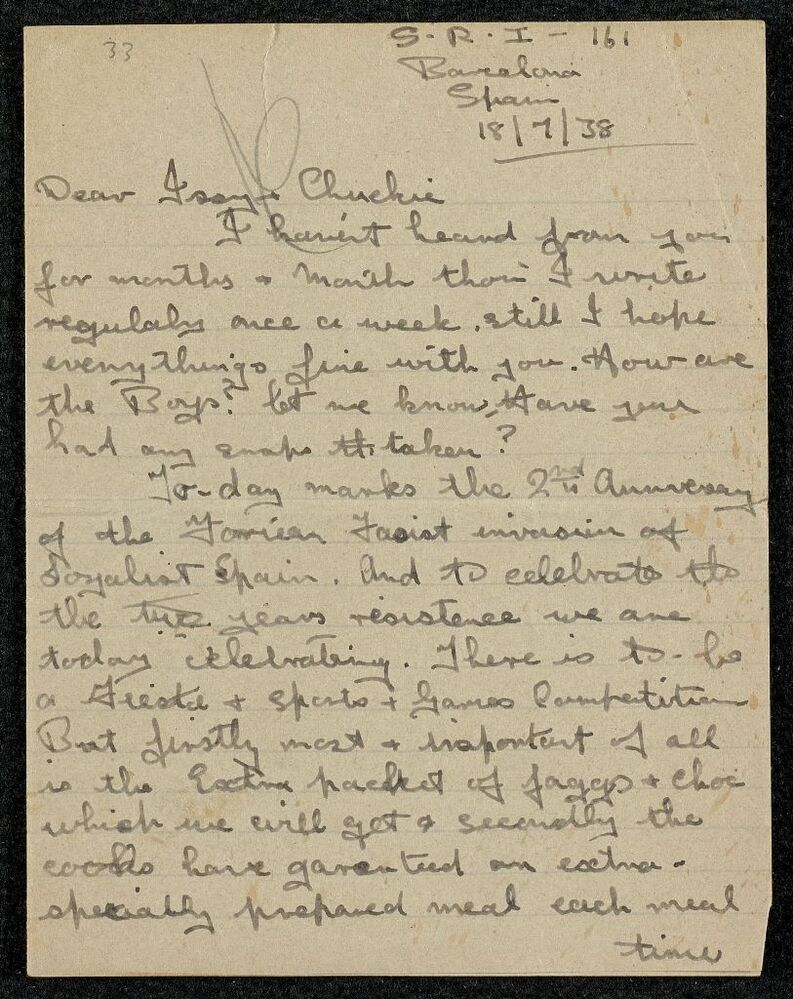 33
S.R.I - 161
Barcelona
Spain
18/7/38
Dear Issy + Chuckie
I haven't heard from you
for months + month thou I write
regulaly once a week, still I hope
everythings fine with you. How are
the Boys? let me know, Have you
had any snaps taken?
To-day marks the 2nd Anniversay
of the Facist invasion of
Loyalist Spain. And to celebrate
the two years resistence we are
today celebrateing. There is to-be
a Fiesta + sports + Games Competition
But firstly most + important of all
is the Extra packet of faggs + choc
which we will get + secondly the
cooks have garenteed an extra-
specially prepared meal each meal
time